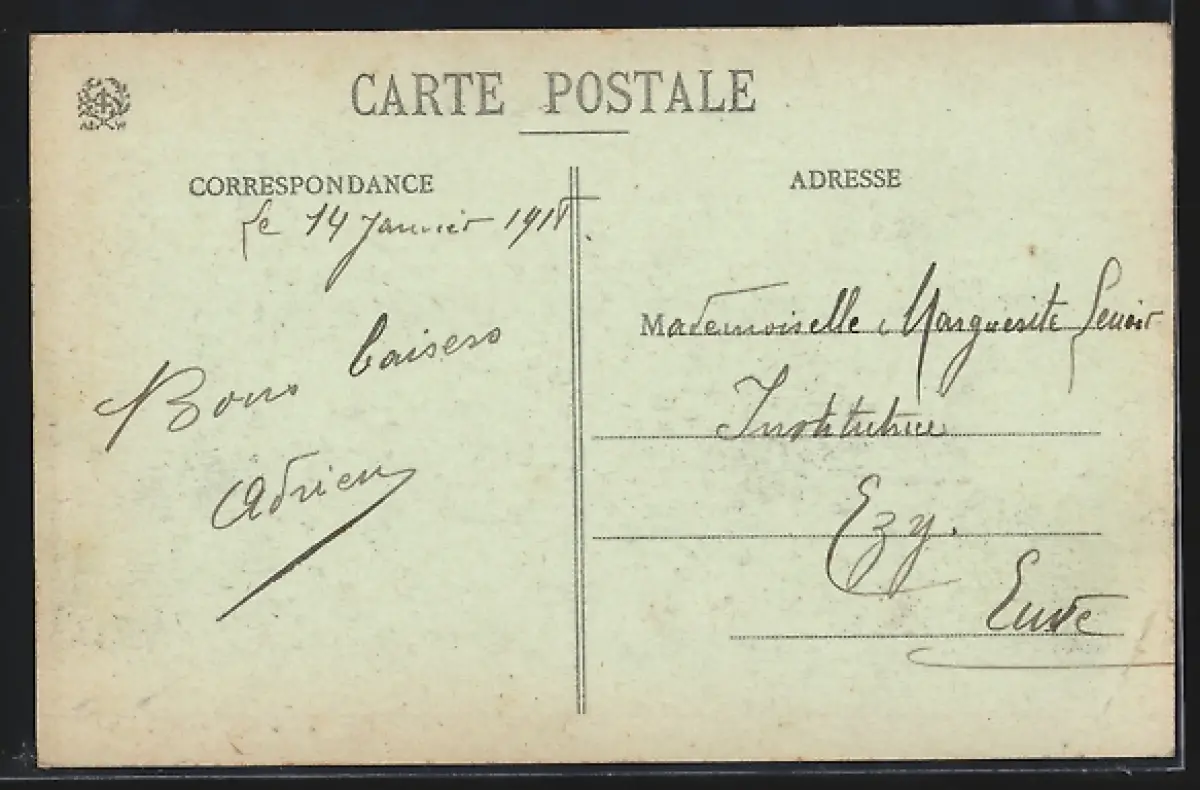 CARTE POSTALE
CORRESPONDANCE
Le 14 Janvier 1918
Bons baisers
Adrien
ADRESSE
Mademoiselle Marguerite Lenoir
Institutrice
Ezy.
Eure